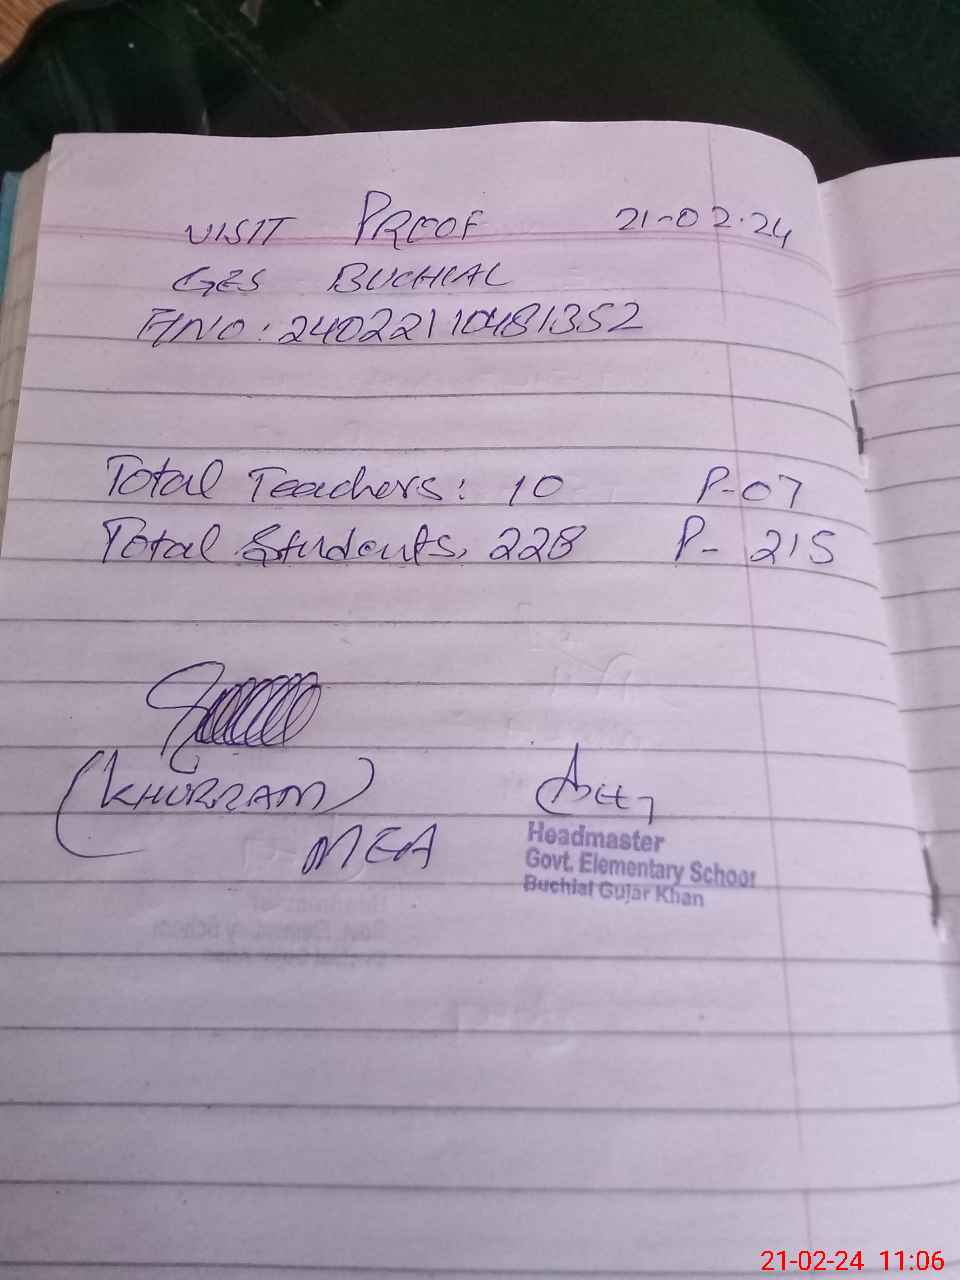 VISIT PROOF 21-02-24
GES BUCHIAL
A/NO: 24022110481352
Total Teachers: 10 P-07
Total Students, 228 P- 215
(KHURRAM)
MEA
Headmaster
Govt. Elementary School
Buchial Gujar Khan
21-02-24 11:06